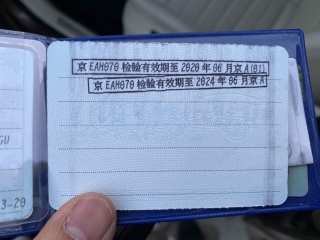 京EAH070检验有效期至2020年06月京A(01)
京EAH070检验有效期至2024年06月京A
3-20